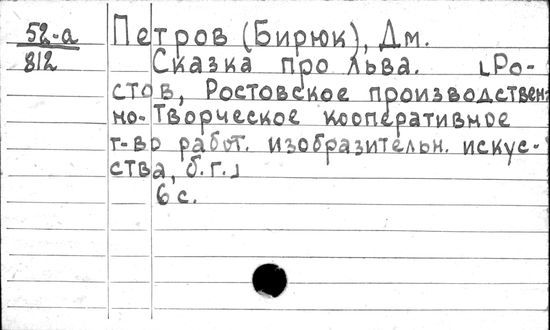 52-а
812
Петров (Бирюк), Дм.
Сказка про льва. [Ро-
стов, Ростовское производствен-
но-Творческое кооперативное
т-во работ. изобразительн. искус-
ства, б.г.]
6 с.